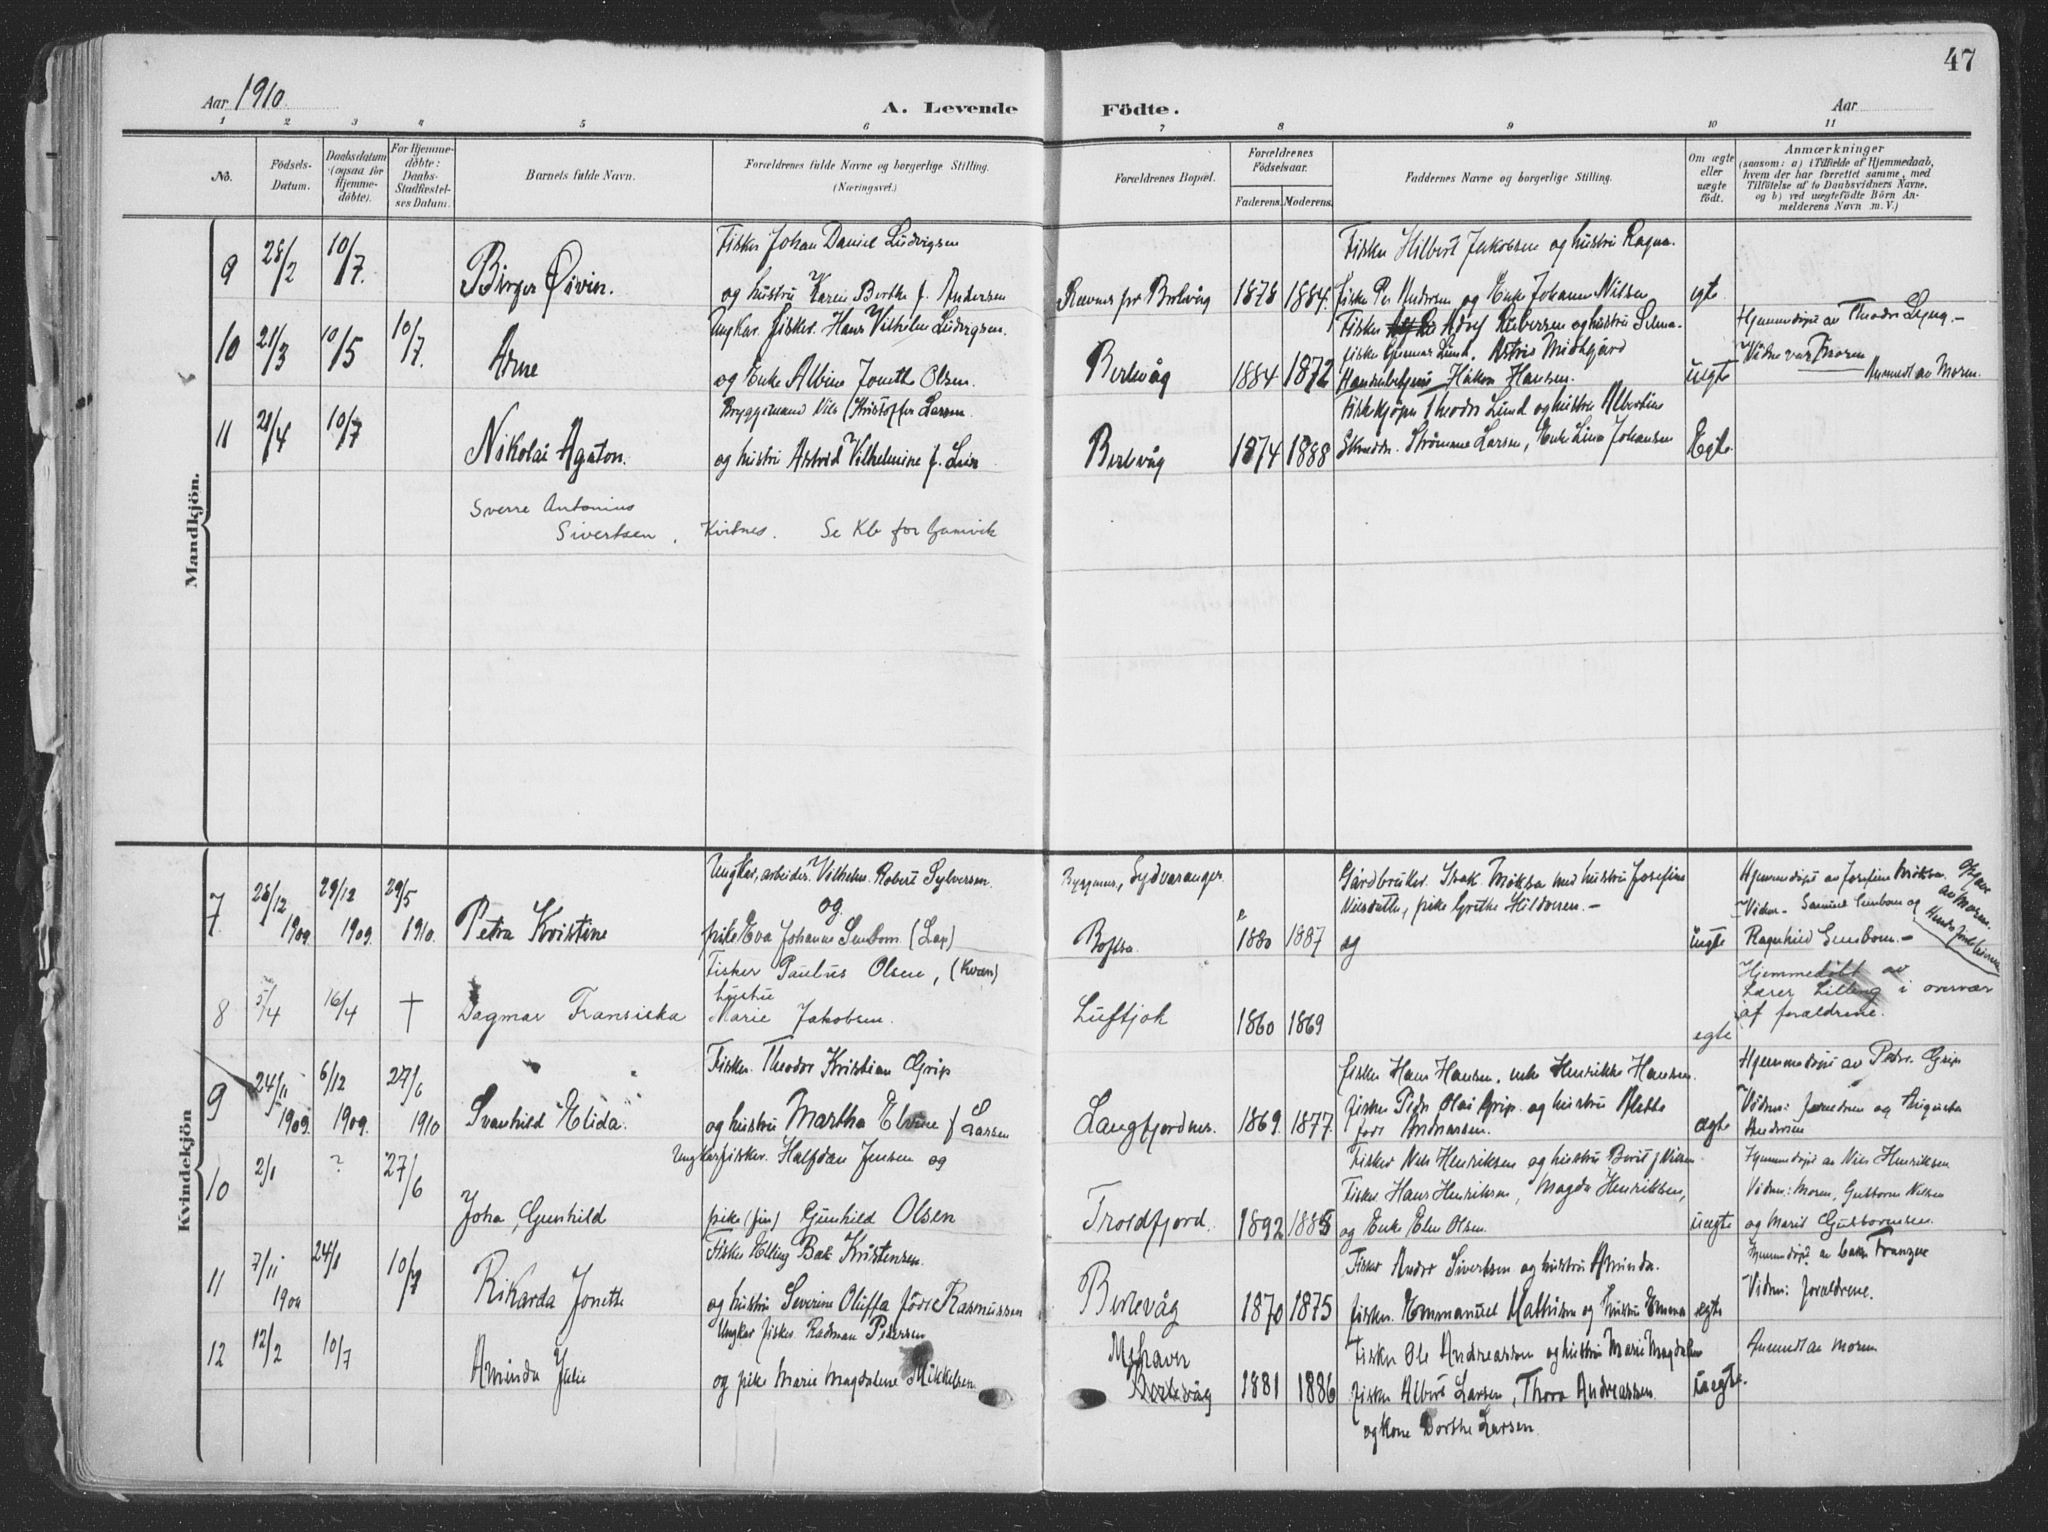 47
Aar 1910.
A. Levende Födte.
Aar
1 2 3 4 5 6 7 8 9 10 11
No.
Födsels-Datum.
Daabsdatum (ogsaa for Hjemme-döbte).
For Hjemme-döbte: Daabs-Stadfæstel-ses Datum.
Barnets fulde Navn.
Forældrenes fulde Navne og borgerlige Stilling.
(Næringsvei.)
Forældrenes Bopæl.
Forældrenes Födselsaar.
Faderens. Moderens.
Faddernes Navne og borgerlige Stilling.
Om ægte eller uægte födt.
Anmærkninger
(saasom: a) i Tilfælde af Hjemmedaab, hvem der har forrettet samme, med Tilföielse af to Daabsvidners Navne, og b) ved uægtefödte Börn An-melderens Navn m. V.)
Mandkjön.
9 28/2 10/7. Birger Öivin.
Fisker Johan Daniel Ludvigsen
og hustru Karen Berthe f. Andersen
Berlevåg 1878 1884.
Fisker Hilbert Jakobsen og hustru Ragna.
fisker Per Andersen og Enke Johanne Nilsen
egte
10 21/3 10/5 10/7. Arne
Ungkar fisker. Hans Vilhelm Ludvigsen.
og Enke Albine Jonette Olsen.
Berlevåg 1884 1872
Fisker Adolf og hustru Selma.
fisker Gunnar Lund.
Håkon Hansen.
uegte
Hjemmedöpt av Theodor Lyng.-
Vidne var Moren
Anmeldt av Moren.
11 28/4 10/7 Nikolai Agaton.
Bryggemand Nils Kristoffer Larsen
og hustru Astrid Vilhelmine f. Lein
Berlevåg 1874 1888
Theodor Lund og hustru Albertine
Larsen, Enke Lina Johansen
Egte
Sverre Antonius
Sivertsen, Kvitnes. Se Kb for Gamvik
Kvindekjön
7. 28/12 1909. 29/12 1909. 29/5 1910. Petra Kristine
Ungkar, arbeider. Vilhelm Robert Sylversen.
og
pike Eva Johanne (Lap)
Sydvaranger.
1880 1887
Gårdbruker. Isak med hustru Josefine
pike Grethe Hildonen.-
og
uegte
Hjemmedöpt av Josefine
Vidner. Samuel og
Ragnhild
av Moren.
8 5/4 16/4 † Dagmar Fransiska
Fisker Paulus Olsen, (Kvæn)
hustru
Marie Jakobsen.
Luftjok 1860 1869
egte
Hjemmedöbt av
Lærer Lilleng i overvær
af forældrene.
9 24/11 1909. 6/12 1909. 27/6 1910 Svanhild Elida.
Fisker. Theodor Kristian Grip
og hustru Martha Elvine f Larsen
Langfjordnes. 1869. 1877.
fisker Hans Hansen. enke Henrikke Hansen.
fisker Peder Olai Grip. og hustru Alette
født Andreassen.
ægte
Hjemmedöpt av Peder Grip
Vidner: og Augusta
Andersen
10 2/1 ? 27/6 Joha, Gunhild
Ungkar fisker. Halfdan Jensen og
pike (fin) Gunhild Olsen
Troldfjord. 1892 1888
Fisker Nils Henriksen og hustru Berit f Nilsen
Fisker Hans Henriksen, Magda Henriksen,
og Enke Elen Olsen.
uegte
Hjemmedöpt av Nils Henriksen
Vidner: Moren, Guttorm Nilsen
og Marit Guttormsen.
11 7/11 24/1 10/7 Rikarda Jonette
Fisker Elling Bak Kristensen.
og hustru Severine Oluffa föde Rasmussen
Berlevåg 1870 1875
Fisker Andor Sivertsen og hustru Aminda.
fisker. Emmanuel Mathisen og hustru Emma
egte
Hjemmedöpt av Franzen
Vidner: forældrene.
12 12/2 10/7 Aminda Julie
Ungkar fisker. Radman Petersen
og pike Marie Magdalene Mikkelsen
Mehavn
Berlevåg 1881 1886
Fisker Ole Andreassen og hustru Marie Magdalen
fisker Albert Larsen, Thora Andreassen.
og kone Dorthe Larsen.
uegte.
Anmeldt av Moren